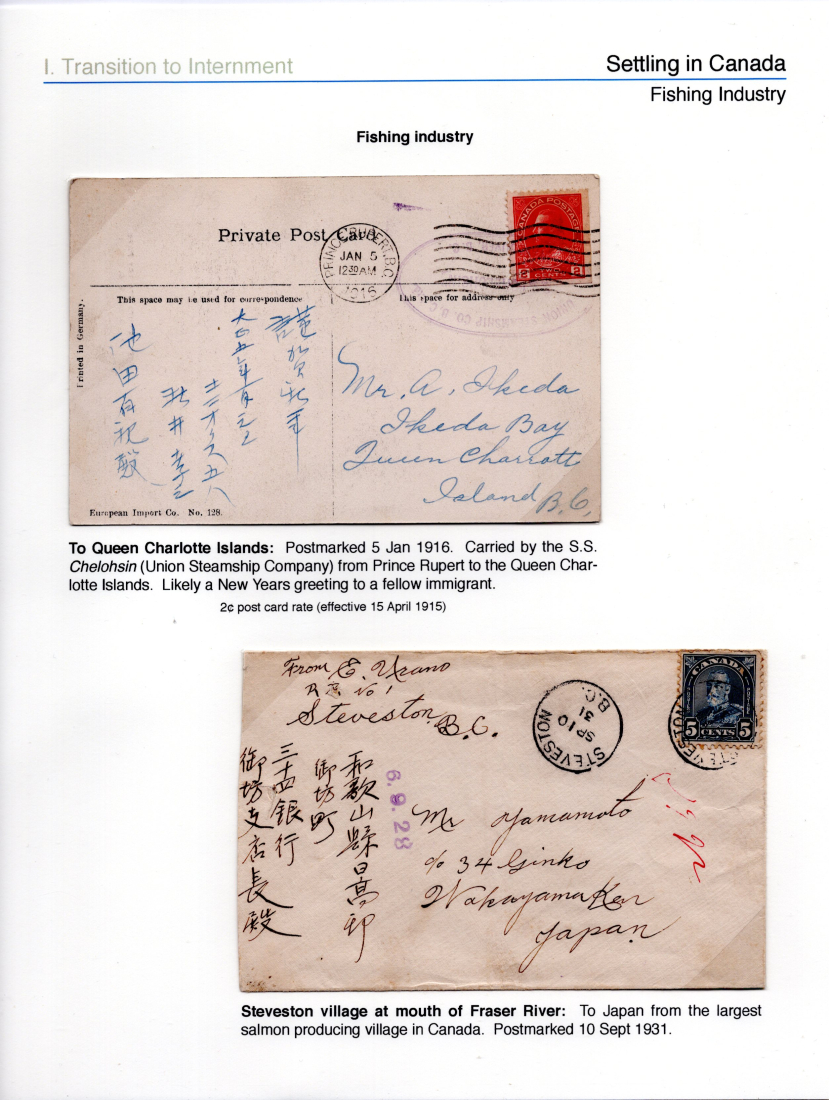 I. Transition to Internment
Settling in Canada
Fishing Industry
Fishing industry
Private Post Card
PRINCE RUPERT, B.C.
JAN 5
12 30 AM
1916
CANADA POSTAGE
2 TWO 2
CENTS
UNION STEAMSHIP CO.
This space may be used for correspondence
This space for address only
Printed in Germany.
謹賀新年
池田有祝殿
Mr. A. Ikeda
Ikeda Bay
Queen Charrott
Island B.C.
European Import Co. No, 128.
To Queen Charlotte Islands: Postmarked 5 Jan 1916. Carried by the S.S.
Chelohsin (Union Steamship Company) from Prince Rupert to the Queen Char-
lotte Islands. Likely a New Years greeting to a fellow immigrant.
2¢ post card rate (effective 15 April 1915)
From E. Urano
No 1
Steveston, B.C.
STEVESTON
SP 10
31
B.C.
CANADA
5 CENTS 5
STEVESTON
和歌山縣日高郡
御坊町
三十四銀行
御坊支店長殿
6.9.28
Mr Yamamoto
c/o 34 Ginko
Wakayama Ken
Japan
Steveston village at mouth of Fraser River: To Japan from the largest
salmon producing village in Canada. Postmarked 10 Sept 1931.